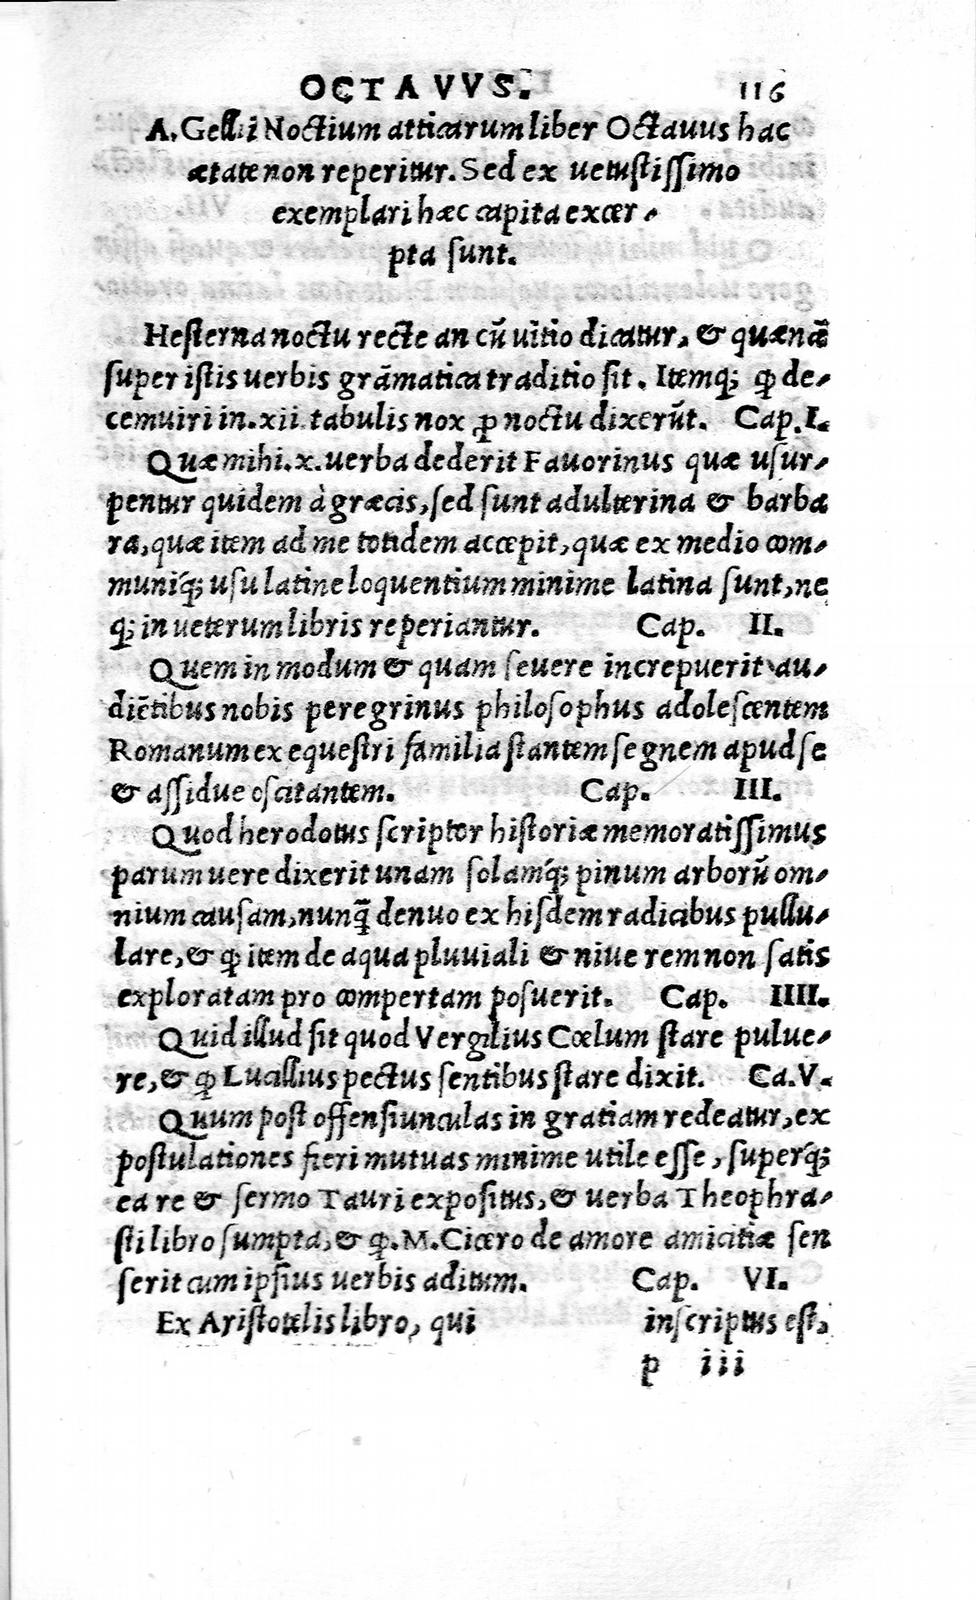 OCTAVVS. 116
A. Gellii Noctium atticarum liber Octauus hac
ætate non reperitur. Sed ex uetustissimo
exemplari hæc capita excer-
pta sunt.
Hesterna noctu recte an cū uitio dicatur, & quænā
super istis uerbis grāmatica traditio sit. Itemq; ꝙ de-
cemuiri in .xii. tabulis nox ꝓ noctu dixerūt. Cap. I.
Quæ mihi .x. uerba dederit Fauorinus quæ usur-
pentur quidem à græcis, sed sunt adulterina & barba
ra, quæ item ad me totidem accepit, quæ ex medio com-
muniq́; usu latine loquentium minime latina sunt, ne
q; in ueterum libris reperiantur. Cap. II.
Quem in modum & quam seuere increpuerit au-
diētibus nobis peregrinus philosophus adolescentem
Romanum ex equestri familia stantem segnem apud se
& assidue oscitantem. Cap. III.
Quod herodotus scriptor historiæ memoratissimus
parum uere dixerit unam solamq́; pinum arborū om-
nium causam, nunq̄ denuo ex hisdem radicibus pullu-
lare, & ꝙ item de aqua pluuiali & niue rem non satis
exploratam pro compertam posuerit. Cap. IIII.
Quid illud sit quod Vergilius Cœlum stare pulue-
re, & ꝙ Lucillius pectus sentibus stare dixit. Ca. V.
Quum post offensiunculas in gratiam redeatur, ex
postulationes fieri mutuas minime utile esse, superq́;
ea re & sermo Tauri expositus, & uerba Theophra-
sti libro sumpta, & ꝙ. M. Cicero de amore amicitiæ sen
serit cum ipsius uerbis aditum. Cap. VI.
Ex Aristotelis libro, qui inscriptus est,
p iii